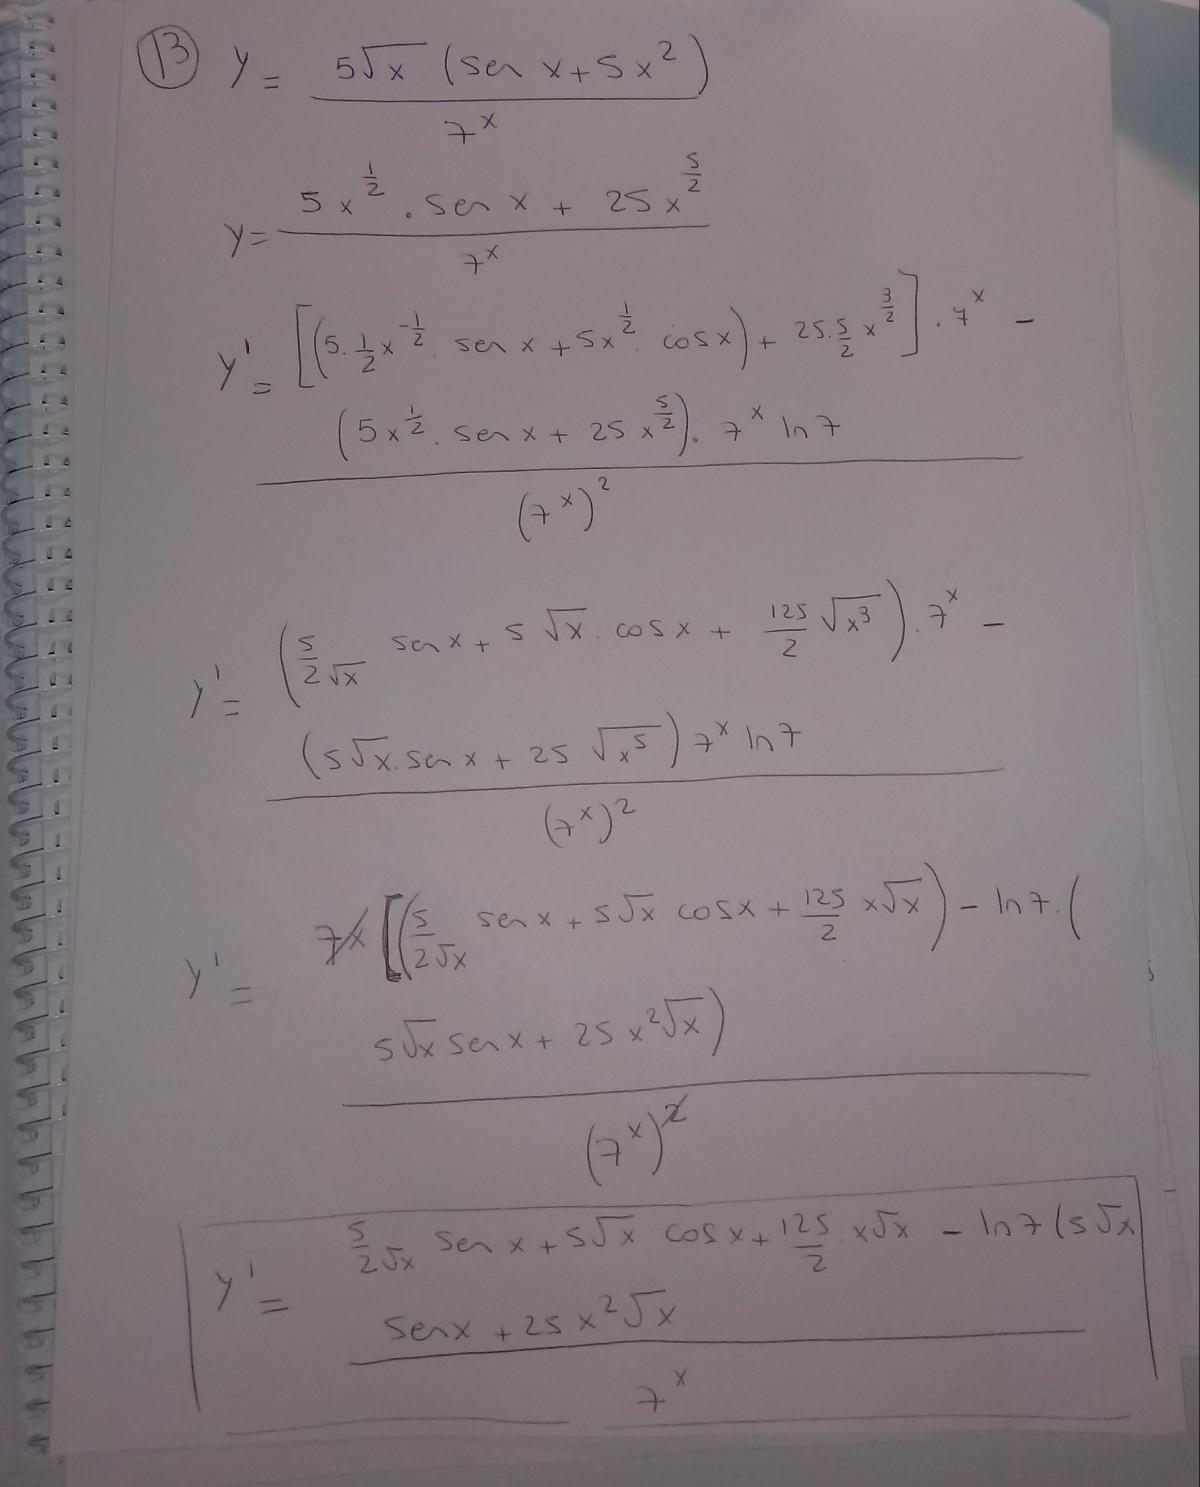 13 y = 5√x (sen x + 5x²)
7ˣ
y = 5x^½ . sen x + 25x^(5/2)
7ˣ
y' = [(5.½x^-½ . sen x + 5x^½ . cos x) + 25.5/2 x^(3/2)] . 7ˣ -
(5x^½ . sen x + 25x^(5/2)) . 7ˣ ln 7
(7ˣ)²
y' = (5/2√x sen x + 5√x . cos x + 125/2 √x³) . 7ˣ -
(5√x . sen x + 25√x⁵) 7ˣ ln 7
(7ˣ)²
y' = 7x [(5/2√x sen x + 5√x cos x + 125/2 x√x) - ln 7 . (
5√x sen x + 25x²√x)
(7ˣ)²
y' = 5/2√x sen x + 5√x cos x + 125/2 . x√x - ln 7 (5√x
sen x + 25x²√x
7ˣ